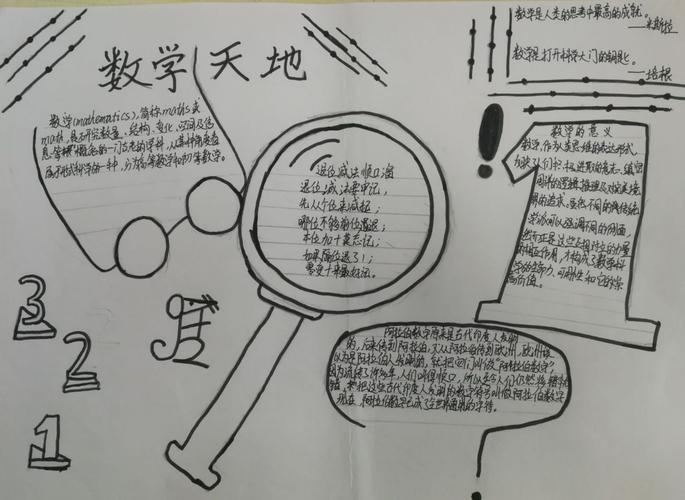 数学天地
数学是人类的思考中最高的成就。
——米斯拉
数学是打开科学大门的钥匙。
——培根
数学(mathematics),简称maths或
math,是研究数量、结构、变化、空间及信
息等概念的一门古老的学科,从某种角度看
属于形式科学的一种,分为高等数学和初等数学。
退位减法顺口溜
退位减法要牢记,
先从个位来减起;
哪位不够前位退,
本位加十莫忘记;
如果隔位退了1;
零变十来最好记。
数学的意义
数学,作为人类思维的表达形式,
反映了人们积极进取的意志、缜密
周详的逻辑推理及对完美境
界的追求。虽然不同的传统
学派可以强调不同的侧面,
然而正是这些互相对立的力量
的相互作用,才构成了数学科
学的生命力、可用性和它的崇
高价值。
阿拉伯数字原来是古代印度人发明
的,后来传到阿拉伯,又从阿拉伯传到欧洲,欧洲人
以为是阿拉伯人发明的,就把它们叫做“阿拉伯数字”,
因为流传了许多年,人们叫得顺口,所以至今人们仍然将错就
错,把这些古代印度人发明的数字符号叫做阿拉伯数字
现在,阿拉伯数字已成了全世界通用的字符。
3
2
1